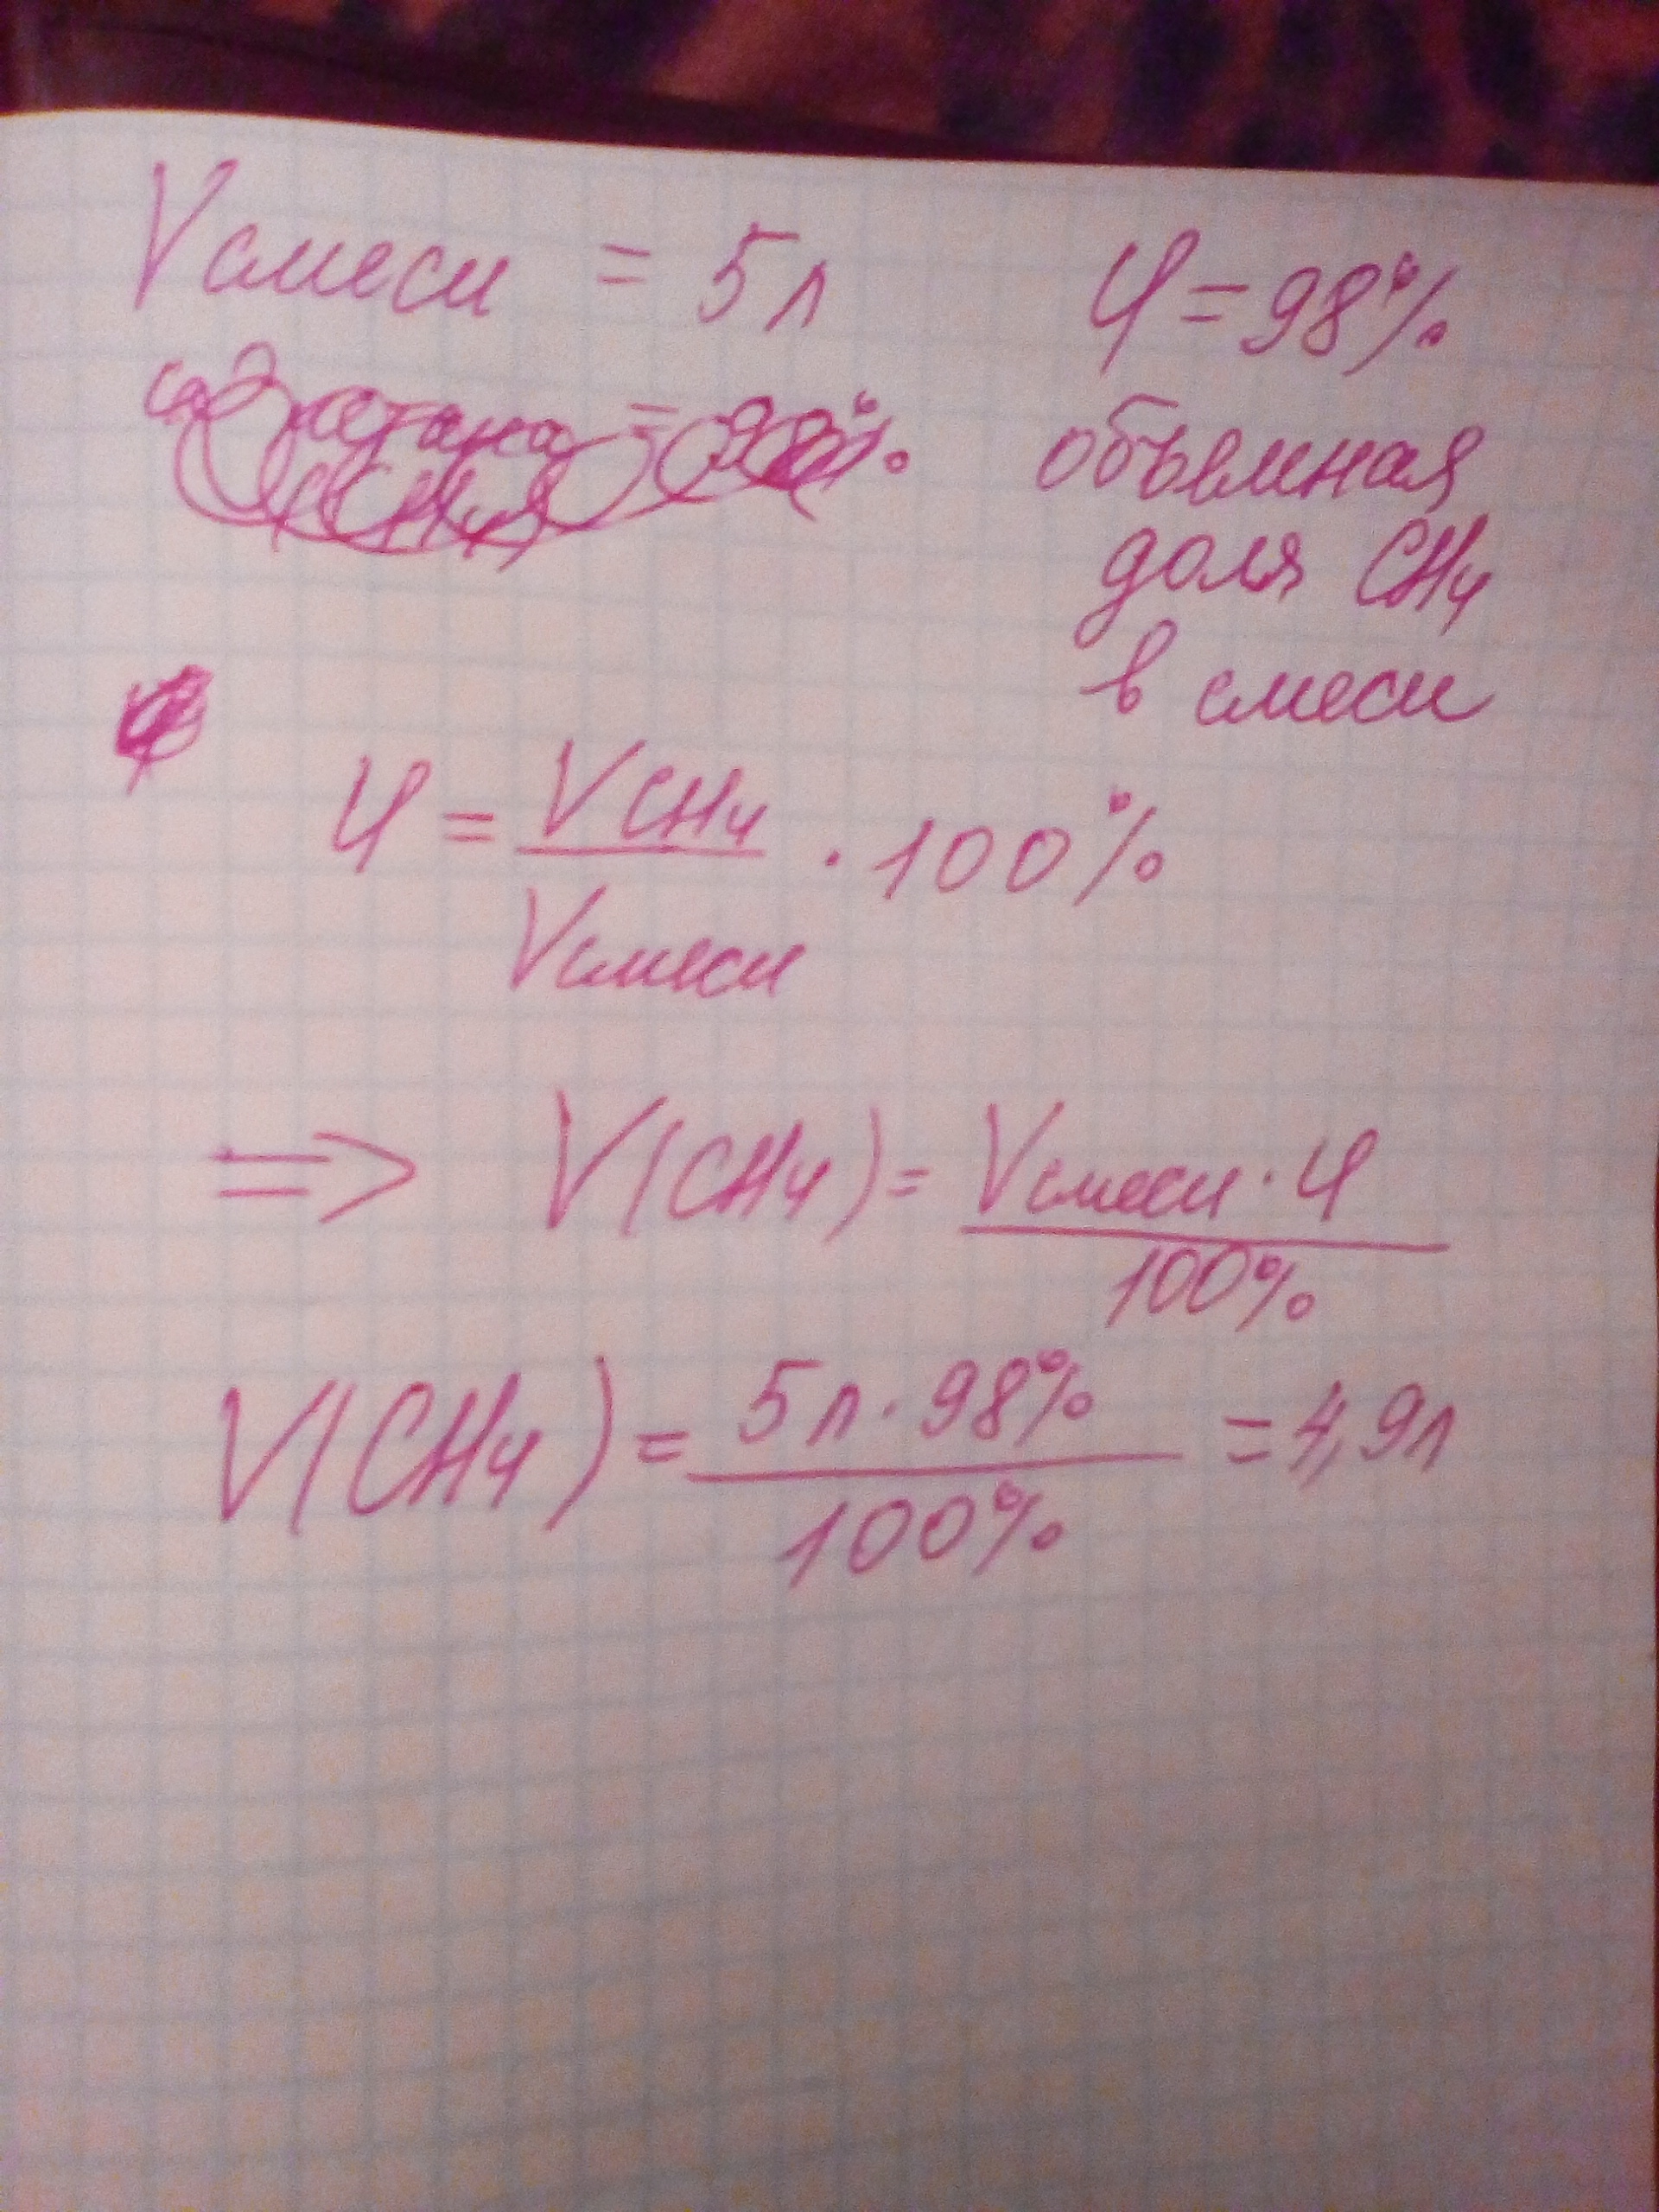 Vсмеси = 5л φ = 98%
объемная
доля CH₄
в смеси
φ = VCH₄ / Vсмеси · 100%
=> V(CH₄) = Vсмеси · φ / 100%
V(CH₄) = 5л · 98% / 100% = 4,9л